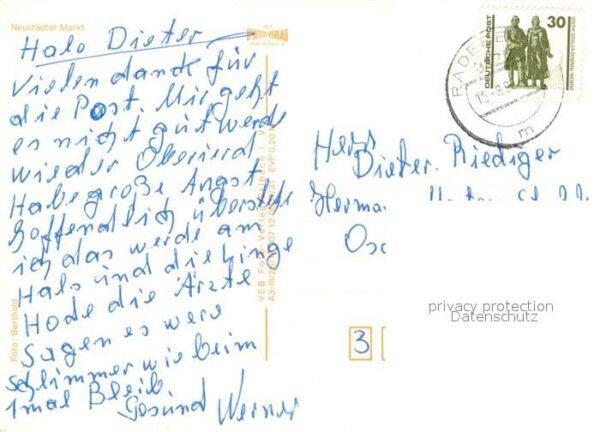 Neustädter Markt
Halo Dieter
Vielen dank für
die Post. Mir geht
es nicht gut werde
wieder Oberierd
Habe große Angst
hoffendlich überstehe
ich das werde am
Hals und die Linge
Hode die Ärzte
Sagen es were
schlimmer wie beim
1mal Bleib
Gesund Werner
Foto: Berthold
VEB Foto-Verlag
EVP 0,20 M
DEUTSCHE POST
30
RADEBE
15.-8.
m
Herr
Dieter Riediger
Herma
Osc
privacy protection
Datenschutz
3